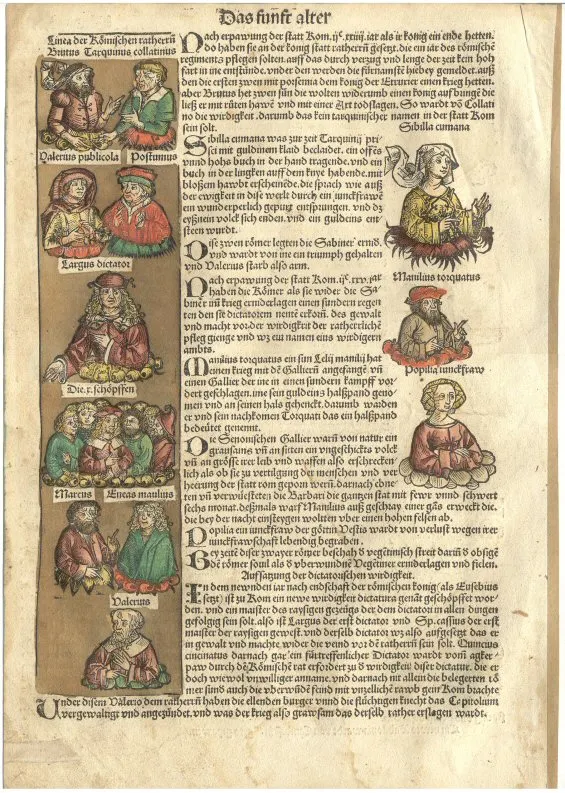 Das fünft alter
Linea der Römischen ratherrn
Brutus Tarquinus collatinus
Valerius publicola Postumus
Largus dictator
Die .x. schöpffen
Marcus Eneas manlius
Valerius
Nach erpawung der statt Rom .ijc. xxiiij. iar als ir könig ein ende hetten.
do haben sie an der könig statt ratherrn gesetzt. die ein iar des römischē
regiments pflegen solten. auff das durch verzug vnd lenge der zeit kein hof
fart in ine entstünde. vnder den werden die fürnamstē hiebey gemeldet. auß
den die ersten zwen mit porsenna dem könig der Etrurier einen krieg hetten.
aber Brutus het zwen sün die wolten widerumb einen könig auf bringē die
ließ er mit růten hawē vnd mit einer Axt todslagen. So wardt vō Collati
no die wirdigkeit. darumb das kein tarquinischer namen in der statt Rom
sein solt.
Sibilla cumana
Sibilla cumana was zur zeit Tarquinij pri
sci mit guldinem klaid beclaidet. ein offēs
vnnd hohs buch in der hand tragende. vnd ein
buch in der lingken auff dem knye habende. mit
bloßem hawbt erscheinēde. die sprach wie auß
der ewigkeit in dise werlt durch ein iunckfrawē
ein wunderperlich gepurt entsprungen. vnd dz
eyßnem volck sich enden. vnd ein guldeins ent
steen wurdt.
Dise zwen römer legten die Sabiner ernid.
vnd wardt von ine ein triumph gehalten
vnd Valerius starb also arm.
Manlius torquatus
Nach erpawung der statt Rom .ijc. xxv. iar
haben die Römer als sie wider die Sa-
biner im krieg ernderlagen einen sundern regen
ten den sie dictatorem nenten erkorn. des gewalt
vnd macht vor der wirdigkeit der ratherrlichē
pfleg gienge vnd wz eu namen eins wirdigern
ambts.
Popilia iunckfraw
Manlius torquatus ein sun Lelij manlij hat
einen krieg mit dē Galliern angefangē vñ
einen Gallier der ine in einen sundern kampff vor
dert geschlagen. ime sein guldeins halßpand geno
men vnd an seinen hals gehenckt. darumb warden
er vnd sein nachkomen Torquati das ein halßpand
bedeütet genennt.
Die Senonischen Gallier warn von natur ein
grausams vñ an sitten ein vngeschickts volck
vñ an grösse irer leib vnd waffen also erschrecken
lich als ob sie zu vertilgung der menschen vnd ver
heerung der statt rom geporn wern. darnach ehne
ten vñ verwüesteten die Barbari die gantzen stat mit fewr vnnd schwert
sechs monat. deßmals warf Manlius auß geschray einer gās erweckt die.
die bey der nacht einsteygen wollten vber einen hohen felsen ab.
Popilia ein iunckfraw der göttin Vestis wardt von verlust wegen irer
iunckfrawschaft lebendig begraben.
Bey zeitē diser zwayer römer beschahe d vegētinisch streit darin d obsigē
den römer souil als d vberwundnē Vegētiner ernderlagen vnd fielen.
Auffsatzung der dictatorischen wirdigkeit.
In dem newnden iar nach endschaft der römischen könig (als Eusebius
setzt) ist zu Rom ein newe wirdigkeit dictatura genāt geschöpffet wor-
den. vnd ein maister des raysigen gezeügs der dem dictator in allen dingen
gefolgig sein solt. also ist Largus der erst dictator vnd Sp. cassius der erst
master der raysigen gewest. vnd derselb dictator wz also aufgesetzt das er
in gewalt vnd machte. wider die veind vor dē ratherrn sein solt. Quinctius
cincinatus darnach gar ein fürtreffenlicher Dictator wardt vom acker-
paw durch dē Römischē rat erfordert zu d wirdigkeit diser dictatur. die er
doch wiewol vnwilliger anname. vnd darnach nit allein die belegerten rö
mer sunder auch die vberwūdē feind mit vnzellichē rawb gein Rom brachte
Under disem Valerio dem ratherrn haben die ellenden burger vnnd die flüchtigen knecht das Capitolium
vergewaltigt vnd angezündet. vnd was der krieg also grawsam das derselb rather erslagen wardt.